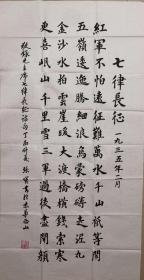 七律長征 一九三五年
紅軍不怕遠征難萬水千山祇等閒
五嶺逶迤騰細浪烏蒙磅礴走泥丸
金沙水拍雲崖暖大渡橋橫鐵索寒
更喜岷山千里雪三軍過後盡開顏
敬錄毛主席七律長征詩句丁酉